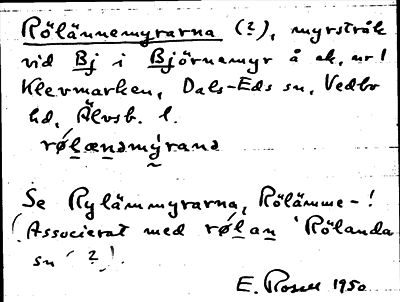 Rölännemyrarna (?), myrstråk
vid Bj i Björnemyr å ek. nr 1
Klevmarken, Dals-Eds sn, Vedbo
hd, Älvsb. l.
røl̲æn̲əmýranə
Se Rylämmyrarna, Rölämme-!
(Associerat med røl̲an̲ 'Rölanda
sn' ?).
E. Rosell 1950